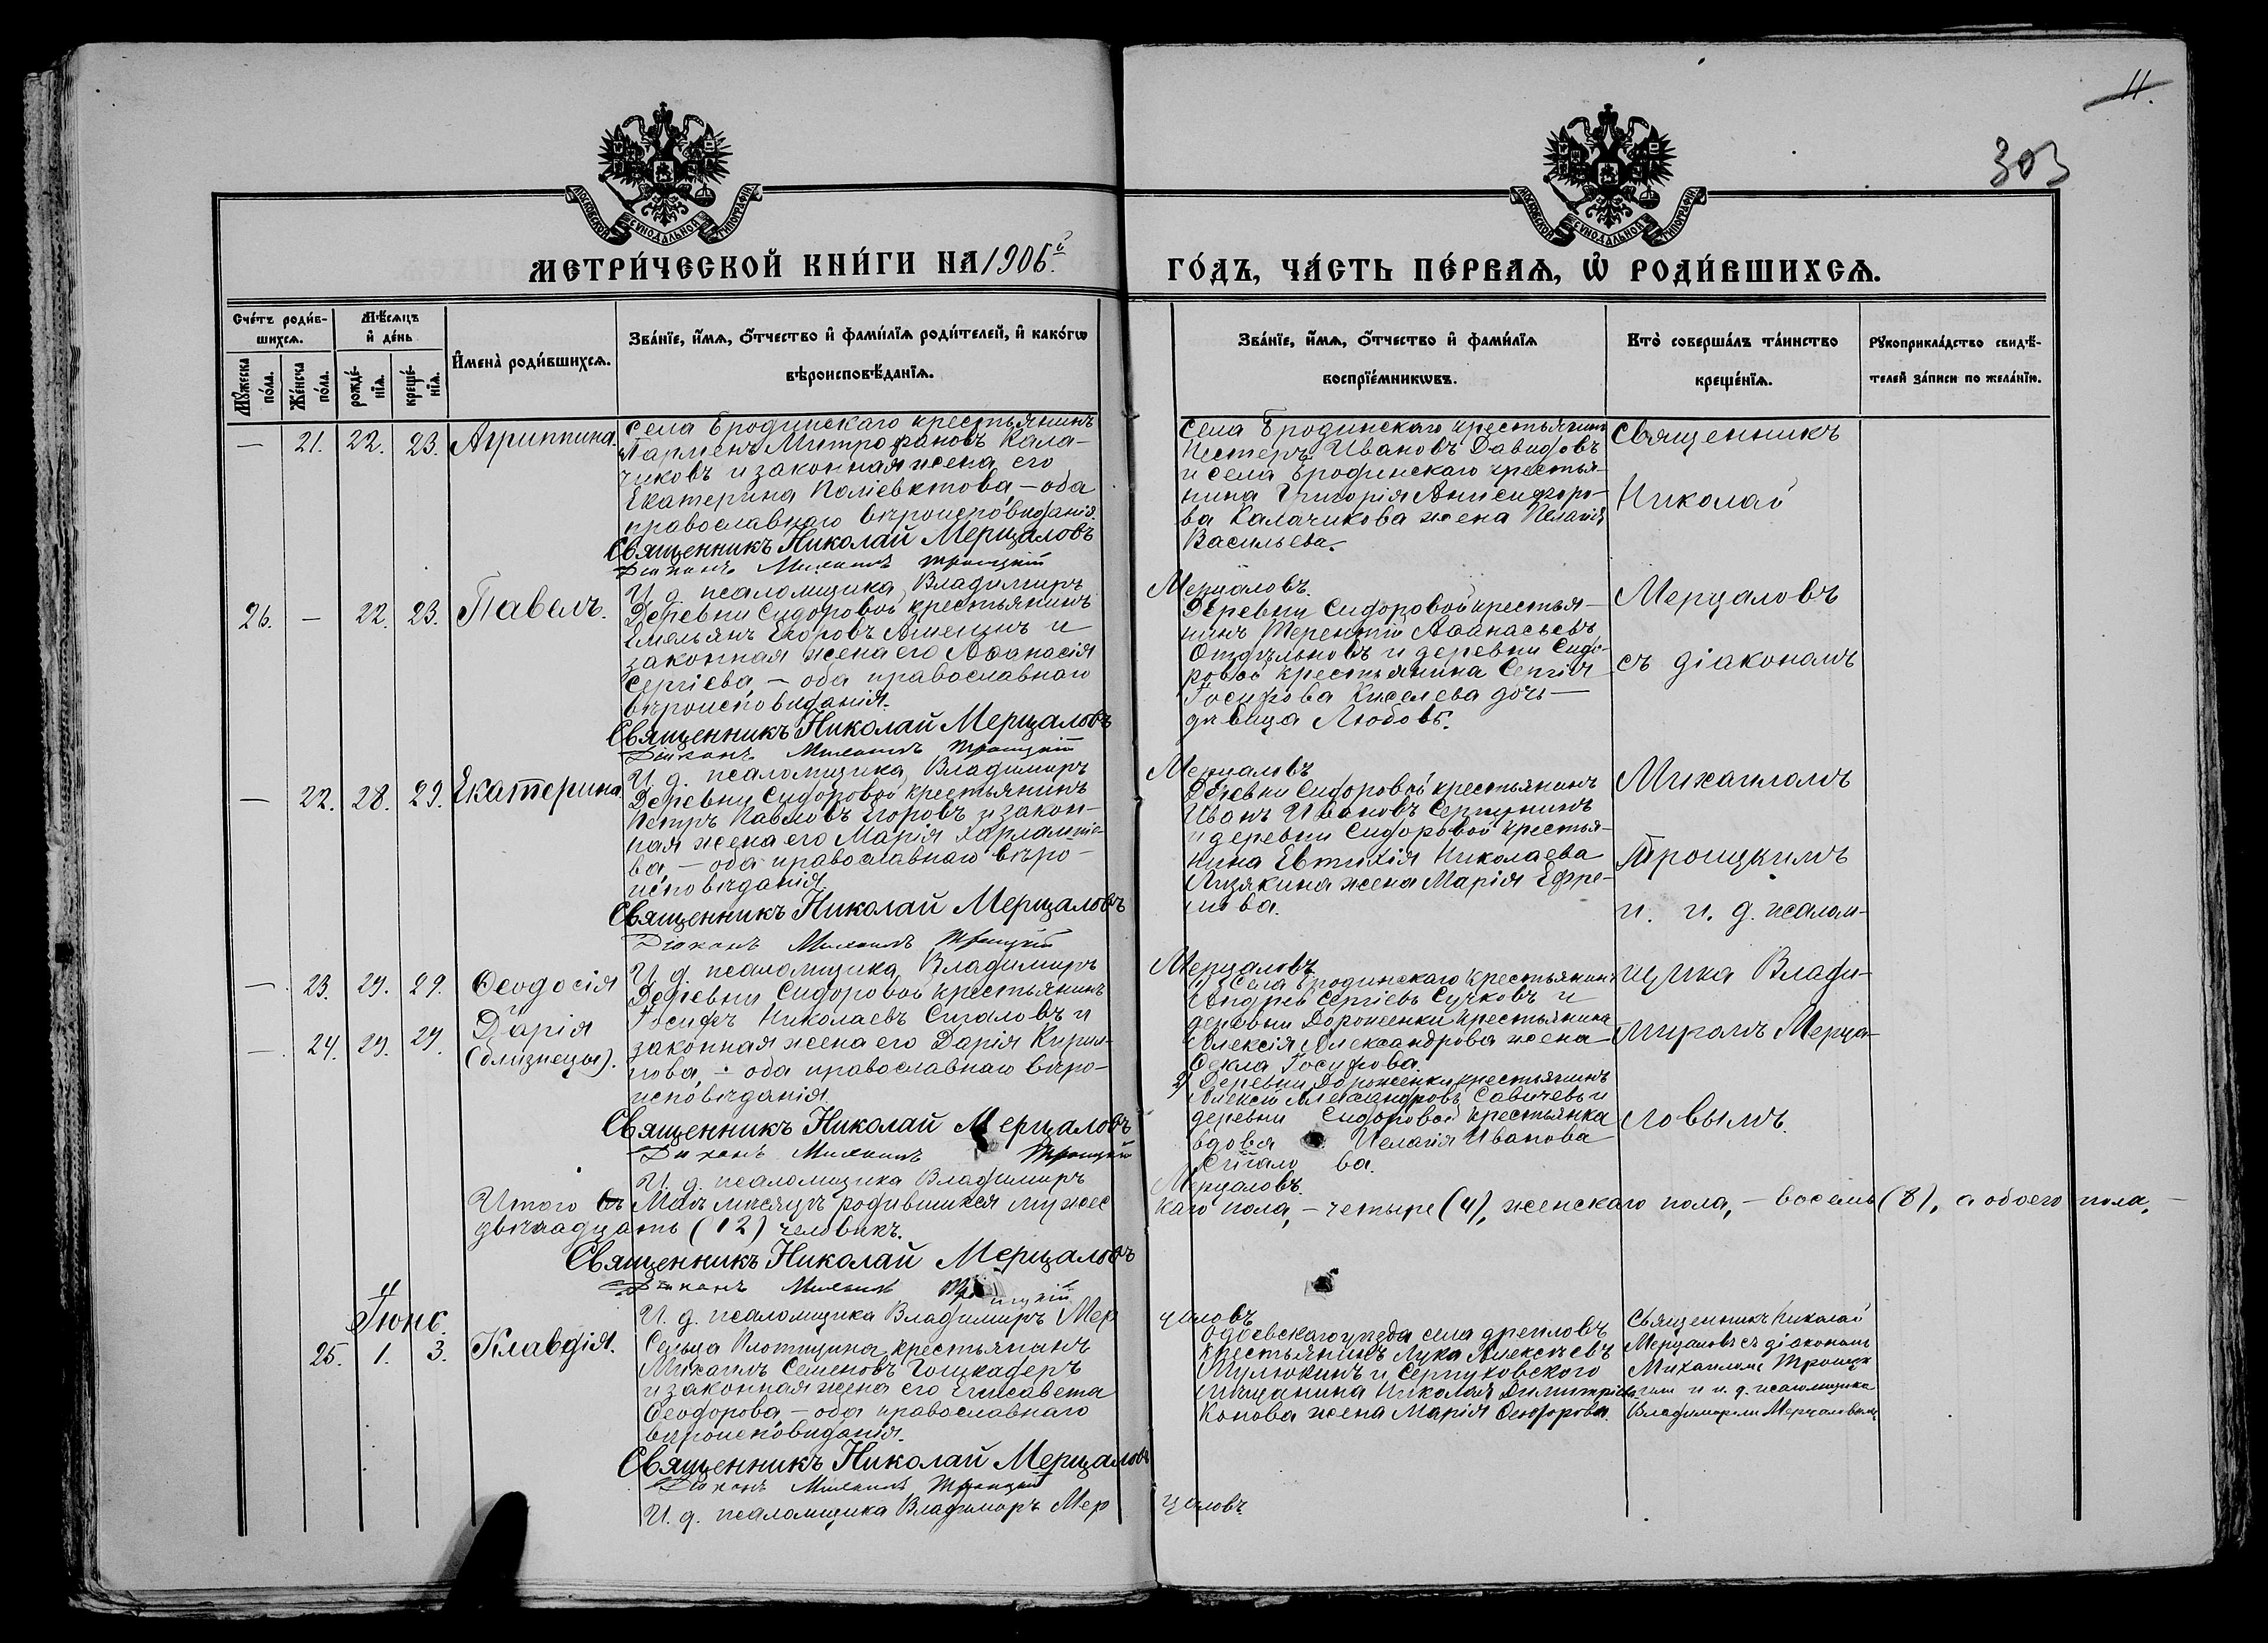 11.
303
МОСКОВСКОЙ СУНОДАЛЬНОЙ ТИПОГРАФІИ
МОСКОВСКОЙ СУНОДАЛЬНОЙ ТИПОГРАФІИ
МЕТРИ́ЧЕСКОЙ КНИ́ГИ НА 1906й
ГО́ДЪ, ЧА́СТЬ ПЕ́РВАѦ, Ѡ҆ РОДИ́ВШИХСѦ.
Сче́тъ роди́в-
шихсѧ.
Мѣ́сѧцъ
и҆ де́нь
Мꙋ́жеска
по́ла.
Же́нска
по́ла.
рожде́-
нїѧ.
креще́-
нїѧ.
И҆мена̀ роди́вшихсѧ.
Зва́нїе, и҆́мѧ, ѻ҆́тчество и҆ фами́лїѧ роди́телей, и҆ како́гѡ
вѣроисповѣ́данїѧ.
Зва́нїе, и҆́мѧ, ѻ҆́тчество и҆ фами́лїѧ
воспрїе́мникѡвъ.
Кто̀ соверша́лъ та́инство
креще́нїѧ.
Рꙋкоприкла́дство свидѣ́-
телей за́писи по жела́нїю.
— 21. 22. 23. Агриппина.
Села Бродинскаго крестьянинъ
Парменъ Митрофановъ Кала-
чиковъ и законная жена его
Екатерина Поліевктова, — оба
православнаго вѣроисповѣданія.
Священникъ Николай Мерцаловъ
Діаконъ Михаилъ Троицкій
И. д. псаломщика Владимиръ
Мерцаловъ.
Села Бродинскаго крестьянинъ
Нестеръ Ивановъ Давидовъ
и села Бродинскаго крестья-
нина Григорія Анисифоро-
ва Калачикова жена Пелагія
Васильева.
26. — 22. 23. Павелъ.
Деревни Сидоровой крестьянинъ
Емельянъ Егоровъ и
законная жена его Аѳанасія
Сергіева — оба православнаго
вѣроисповѣданія.
Священникъ Николай Мерцаловъ
Діаконъ Михаилъ Троицкій
И. д. псаломщика Владимиръ
Мерцаловъ
Деревни Сидоровой крестья-
нинъ Терентій Аѳанасьевъ
Отдѣльновъ и деревни Сидо-
ровой крестьянина Сергія
Іосифова Киселева дочь —
дѣвица Любовь.
— 22. 28. 29. Екатерина
Деревни Сидоровой крестьянинъ
Петръ Павловъ Егоровъ и закон-
ная жена его Марія Харлампіе-
ва, — оба православнаго вѣро-
исповѣданія.
Священникъ Николай Мерцаловъ
Діаконъ Михаилъ Троицкій
И. д. псаломщика Владимиръ
Мерцаловъ
Деревни Сидоровой крестьянинъ
Иванъ Ивановъ
и деревни Сидоровой крестья-
нина Евтихія Николаева
Лизякина жена Марія Ефре-
мова.
— 23. 29. 29. Ѳеодосія
— 24. 29. 29. Дарія
(близнецы).
Деревни Сидоровой крестьянинъ
Іосифъ Николаевъ Сигаловъ и
законная жена его Дарія Кирил-
лова, — оба православнаго вѣро-
исповѣданія.
Священникъ Николай Мерцаловъ
Діаконъ Михаилъ Троицкій
И. д. псаломщика Владимиръ
Мерцаловъ.
1) Села Бродинскаго крестьянинъ
Андрей Сергіевъ Сучковъ и
деревни Дороженки крестьянина
Алексія Александрова жена
Ѳекла Іосифова.
2) Деревни Дороженки крестьянинъ
Алексій Александровъ Савичевъ и
деревни Сидоровой крестьянка
вдова Пелагія Иванова
Сигалова.
Священникъ
Николай
Мерцаловъ
съ діакономъ
Михаиломъ
Троицкимъ
и и. д. псалом-
щика Влади-
миромъ Мерца-
ловымъ.
Итого въ Маѣ мѣсяцѣ родившихся мужес
каго пола, — четыре (4), женскаго пола, — восемь (8), а обоего пола, —
двѣнадцать (12) человѣкъ.
Священникъ Николай Мерцаловъ
Діаконъ Михаилъ Троицкій
И. д. псаломщика Владимиръ Мер
цаловъ
Іюнь.
25. 1. 3. Клавдія.
Сельца Плотицина крестьянинъ
Михаилъ Семеновъ
и законная жена его Елисавета
Ѳеодорова, — оба православнаго
вѣроисповѣданія.
Священникъ Николай Мерцаловъ
Діаконъ Михаилъ Троицкій
И. д. псаломщика Владимиръ Мер
цаловъ.
Одоевскаго уѣзда села
крестьянинъ Лука Алексѣевъ
и Серпуховского
мѣщанина Николая Димитріева
Конова жена Марія Ѳеодорова.
Священникъ Николай
Мерцаловъ съ діакономъ
Михаиломъ Троицк
имъ и и. д. псаломщика
Владимиромъ Мерцаловымъ